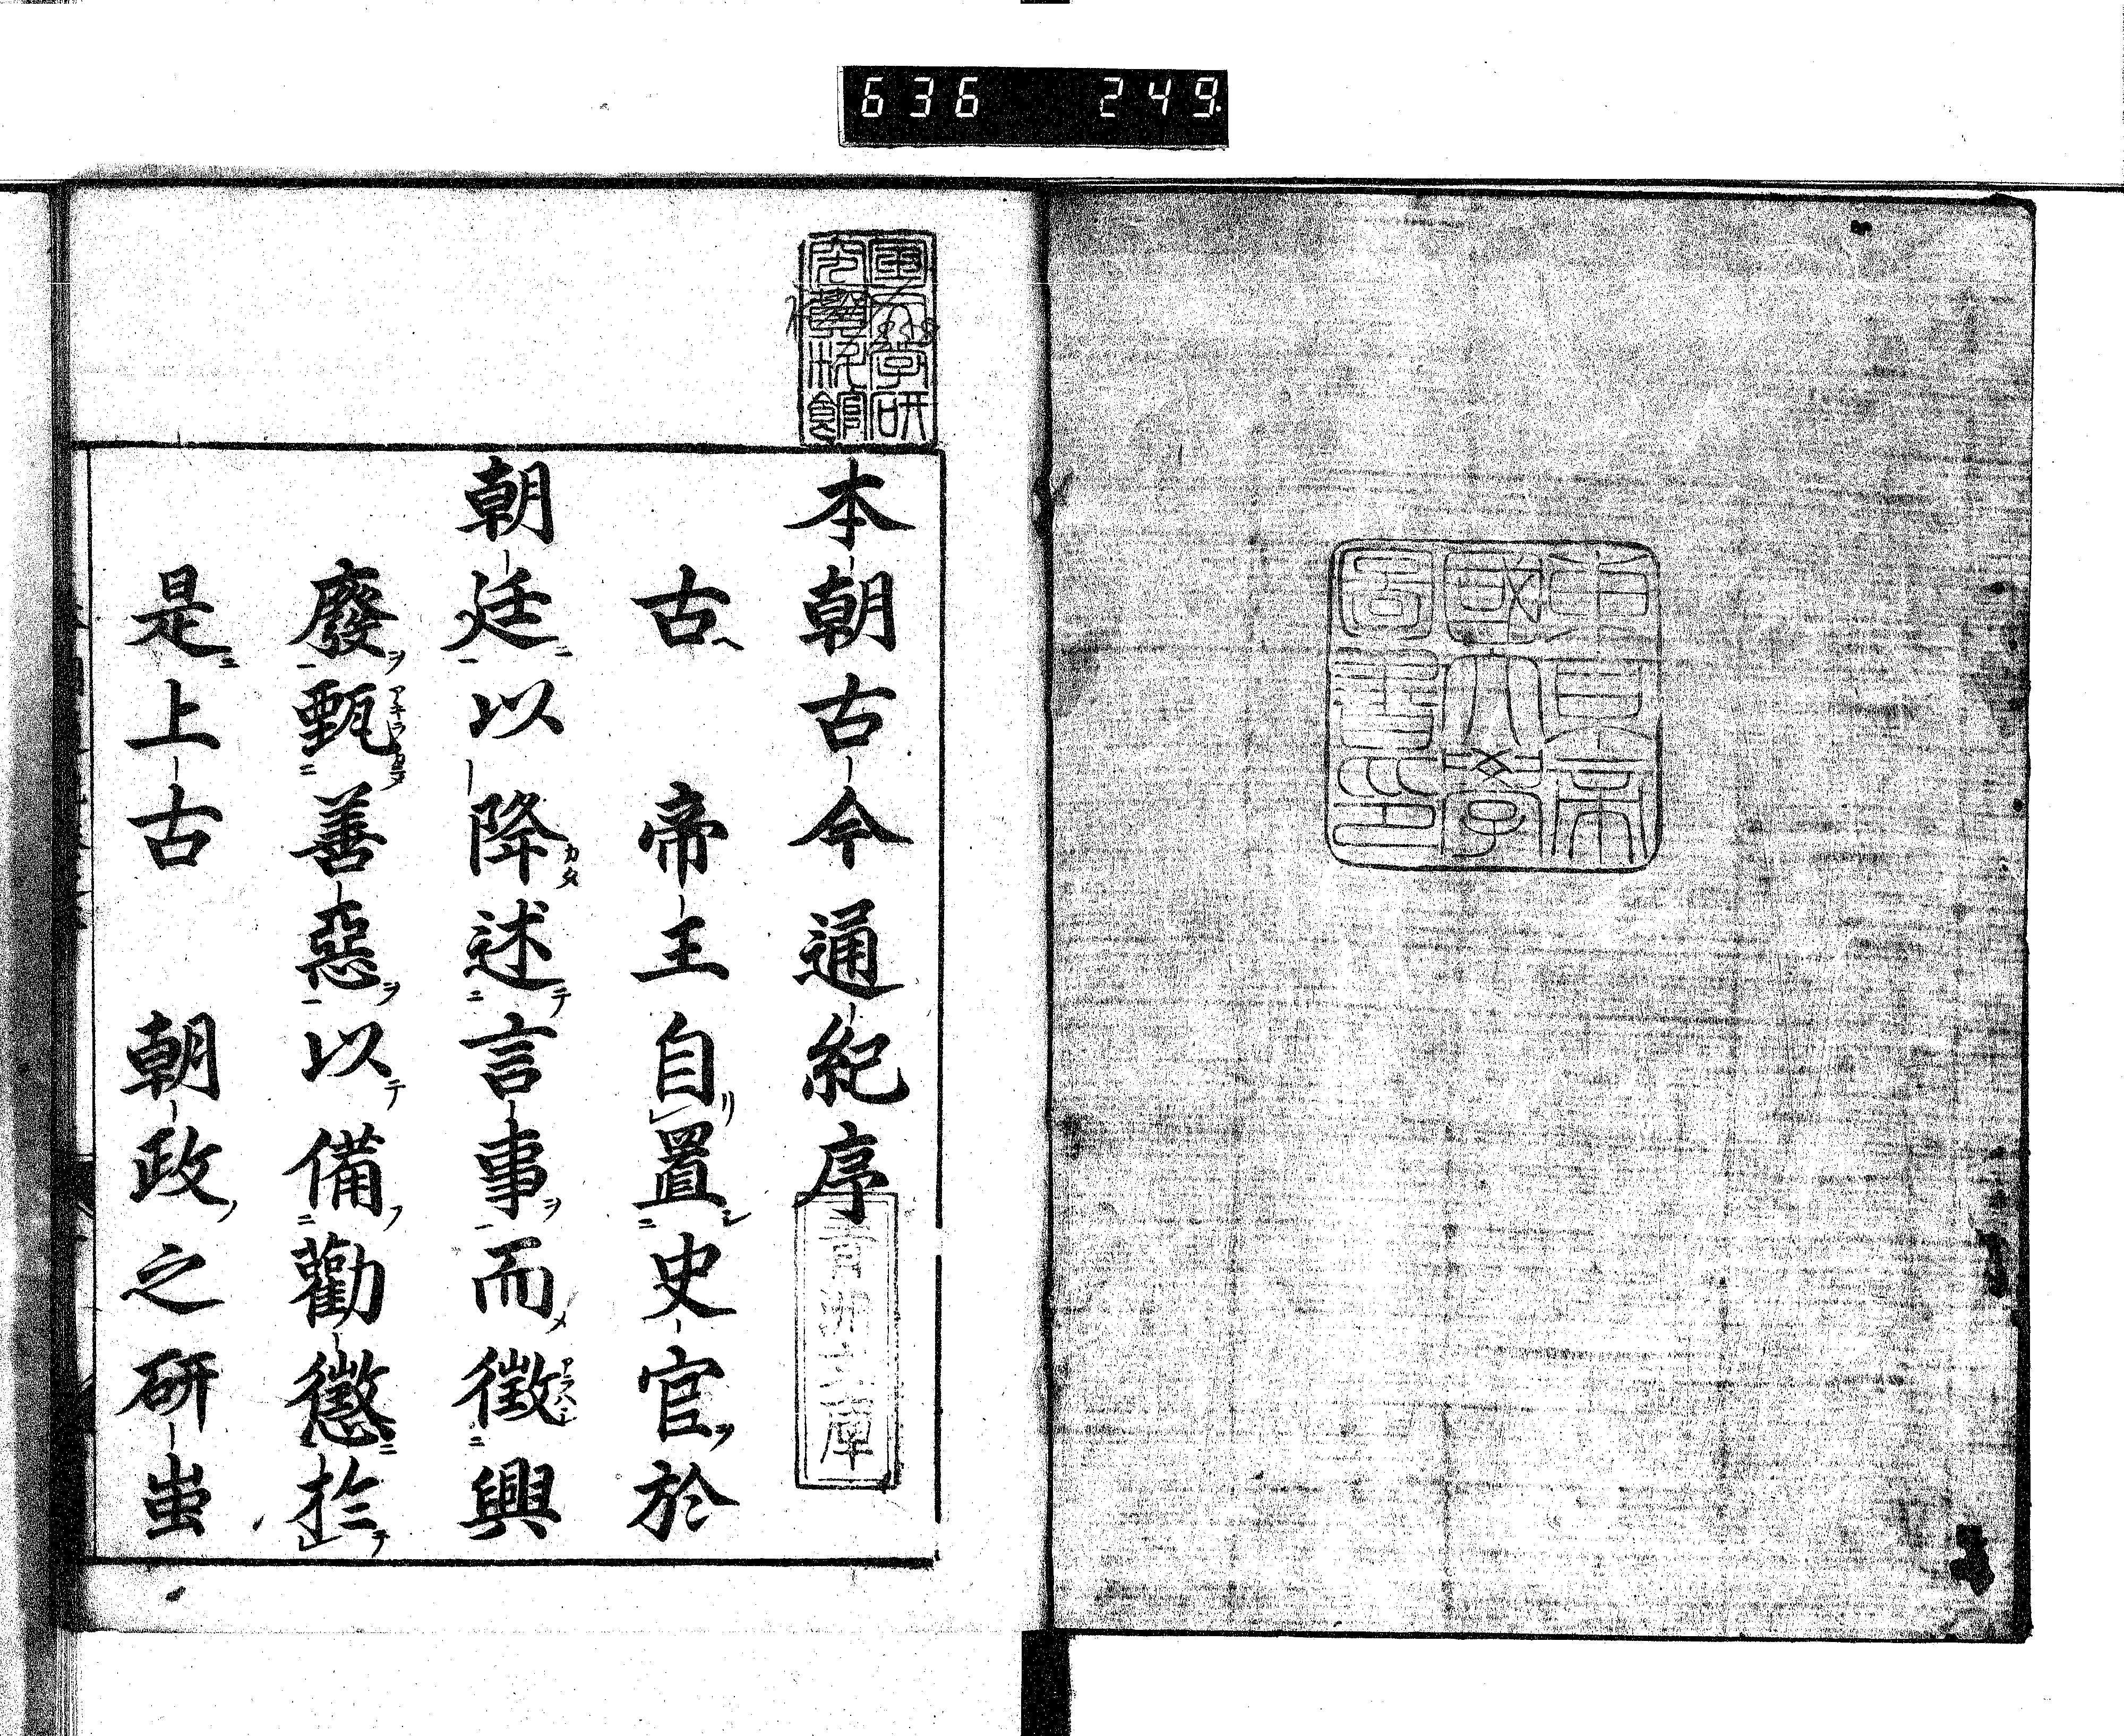 636 249
東京帝
國大學
圖書印
國文學研
究資料館
本朝古今通紀序
青洲文庫
古帝王自置史官於
朝廷以降述言事而徴興
廢甄善惡以備勸懲於
是上古朝政之研蚩